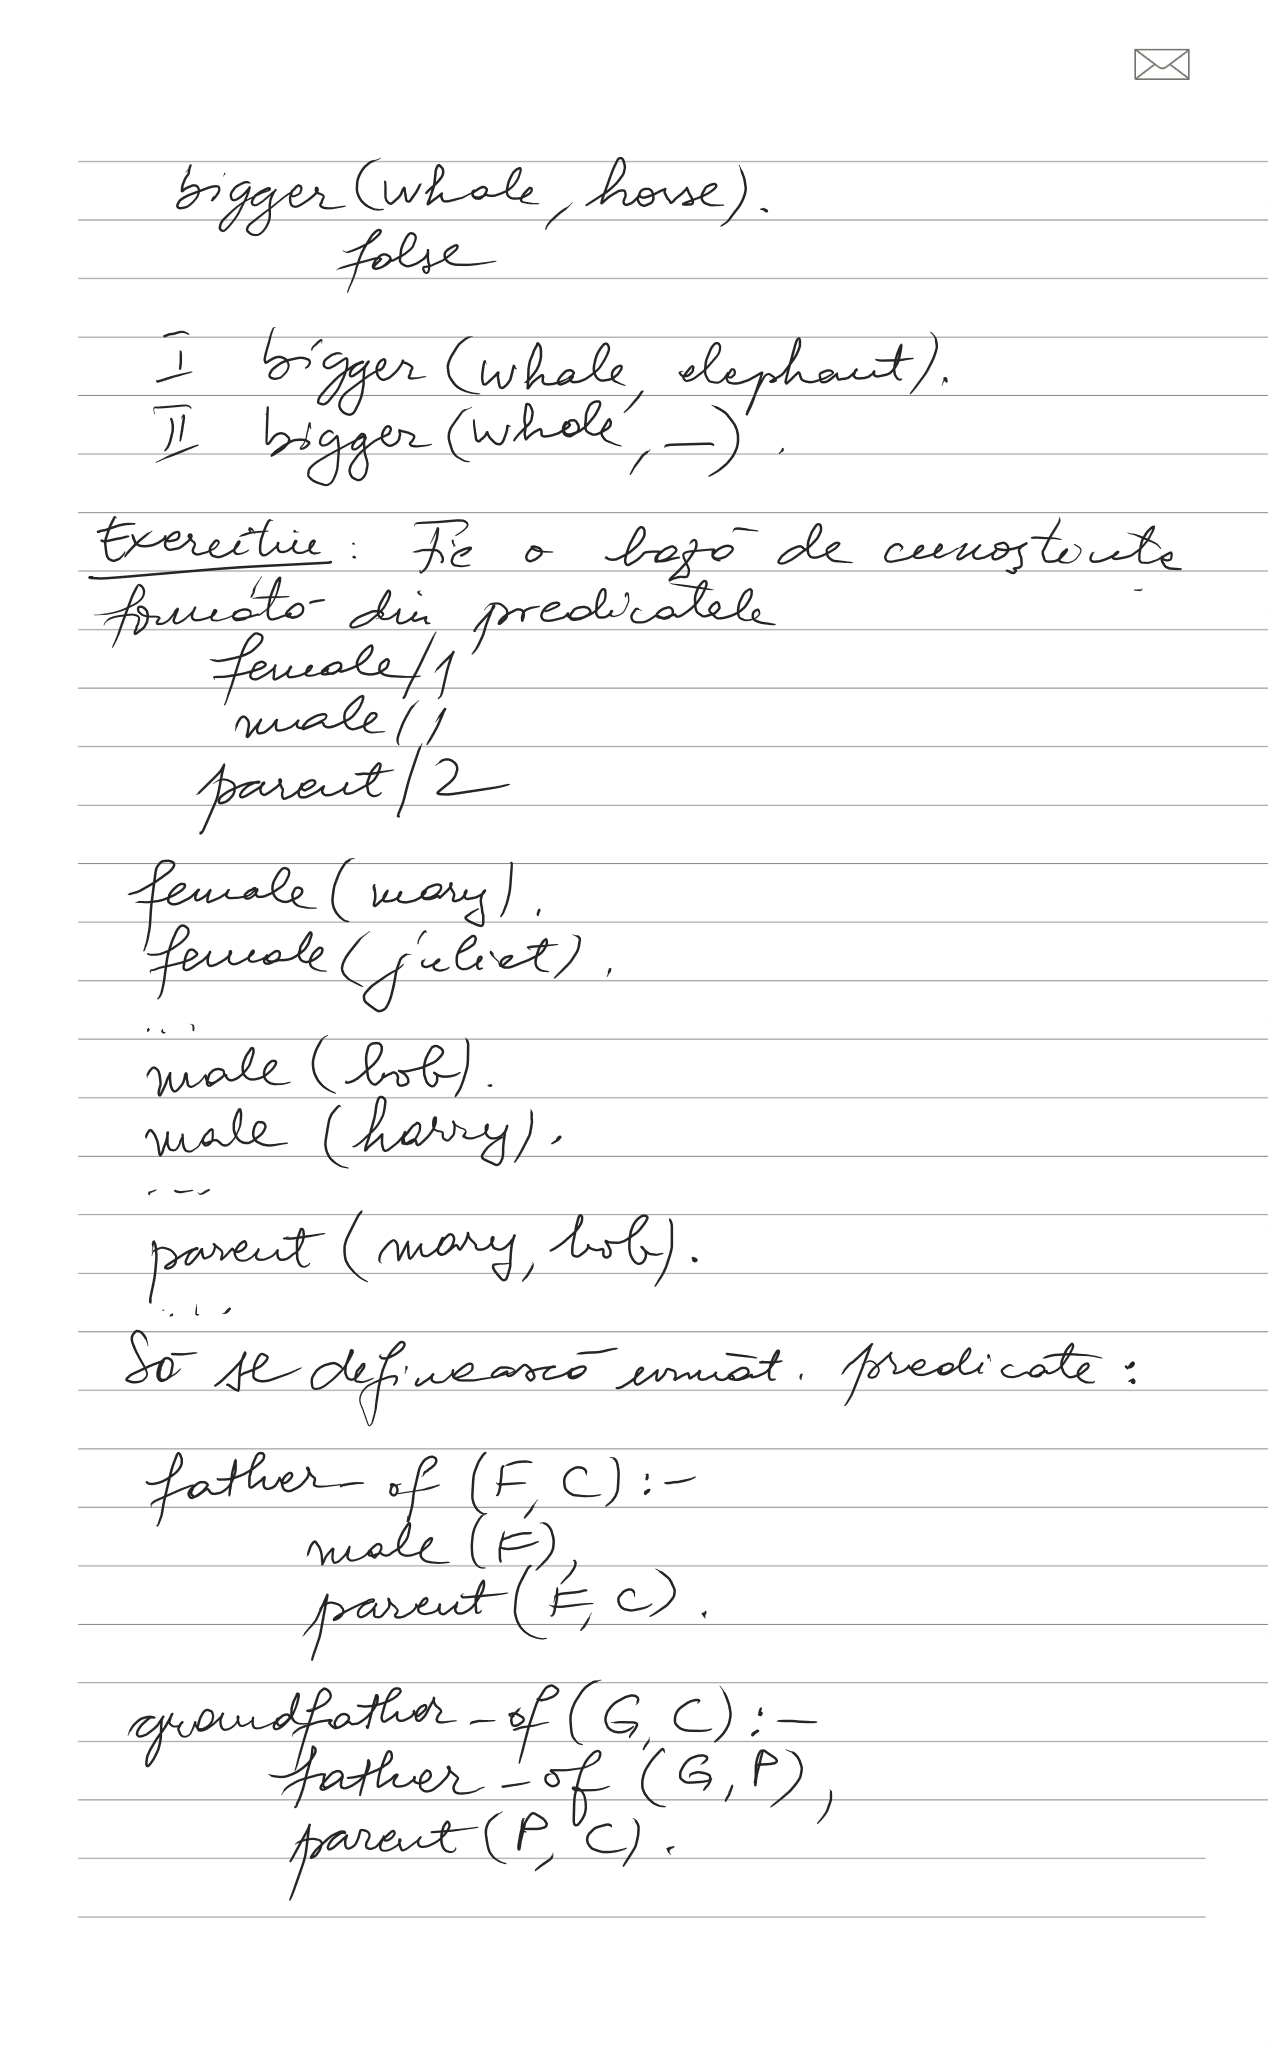 bigger(whale, horse).
false
I bigger(whale, elephant).
II bigger(whale, _).
Exercițiu: Fie o bază de cunoștințe
formată din predicatele
female/1
male/1
parent/2
female(mary).
female(juliet).
...
male(bob).
male(harry).
...
parent(mary, bob).
...
Să se definească următ. predicate:
father_of(F, C) :-
male(F),
parent(F, C).
grandfather_of(G, C) :-
father_of(G, P),
parent(P, C).